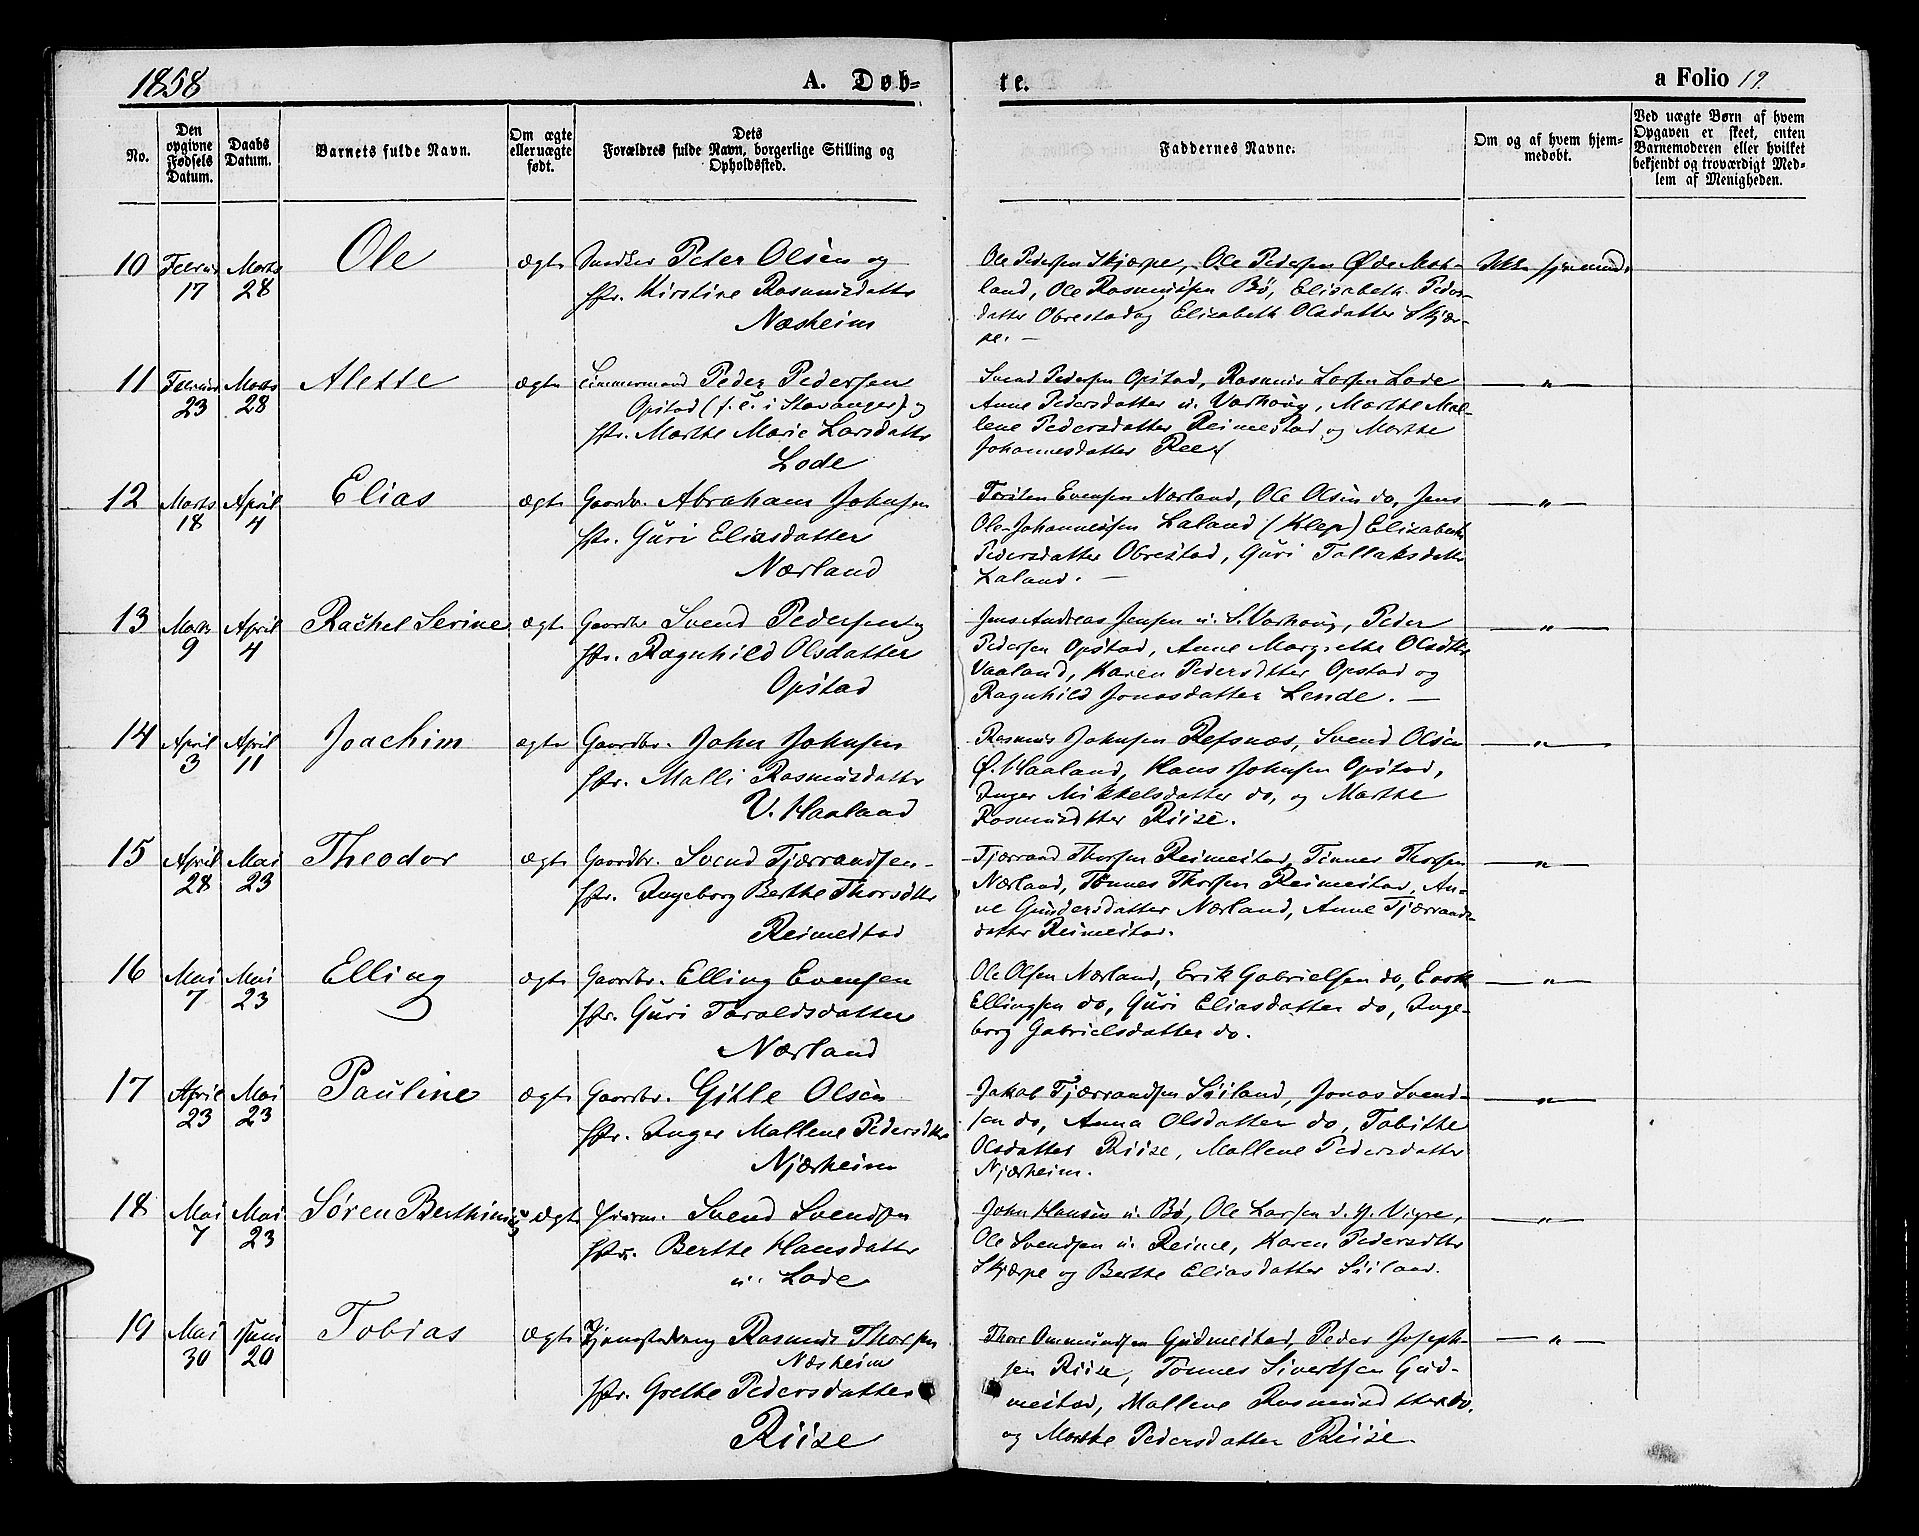 1858
A. Døb-
te.
a Folio 19.
No.
Den opgivne Fødsels Datum.
Daabs Datum.
Barnets fulde Navn.
Om ægte eller uægte født.
Dets Forældres fulde Navn, borgerlige Stilling og Opholdssted.
Faddernes Navne.
Om og af hvem hjemmedøbt.
Ved uægte Børn af hvem Opgaven er skeet, enten Barnemoderen eller hvilket bekjendt og troværdigt Medlem af Menigheden.
10 Februar 17 Marts 28 Ole ægte Snedker Peter Olsen og
Hstr. Kirstine Rasmusdatter
Næsheim
Ole Pedersen Skjærpe, Ole Pedersen Øde Mat-
land, Ole Rasmussen Bø, Elisabeth Peders-
datter Obrestad og Elisabeth Olsdatter Skjær-
pe. –
Ikke hjemmed.
11 Februar 23 Marts 28 Alette ægte Timmermand Peder Pedersen
Opstad (f. e. i Stavanger) og
Hstr. Marthe Marie Larsdatter
Lode
Svend Pedersen Opstad, Rasmus Larsen Lode
Anne Pedersdatter u. Varhoug, Marthe Mal-
lene Pedersdatter Reimestad og Marthe
Johannesdatter Ree
— „ —
12 Marts 18 April 4 Elias ægte Gaardbr. Abraham Johnsen
Hstr. Guri Eliasdatter
Nærland
Torsten Evensen Nærland, Ole Olsen do, Jens
Ole Johannessen Laland (Klep) Elisabeth
Pedersdatter Obrestad, Guri Tollaksdatter
Laland. –
— „ —
13 Marts 9 April 4 Rachel Serine ægte Gaardbr Svend Pedersen og
Hstr. Ragnhild Olsdatter
Opstad
Jens Andreas Jensen u. S. Varhoug, Peder
Pedersen Opstad, Anne Margrethe Olsdtter
Vaaland, Karen Pedersdtter Opstad og
Ragnhild Jonasdatter Lende. –
— „ —
14 April 3 April 11 Joachim ægte Gaardbr. John Johnsen
Hstr. Malli Rasmusdatter
V. Haaland
Rasmus Johnsen Refsnæs, Svend Olsen
Ø. Haaland, Hans Johnsen Opstad,
Inger Mikkelsdatter do, og Marthe
Rasmusdtter Riise.
— „ —
15 April 28 Mai 23 Theodor ægte Gaardbr. Svend Tjærandsen
Hstr. Ingeborg Berthe Thorsdtter
Reimestad
Tjærrand Thorsen Reimestad, Tønnes Thorsen
Nærland, Tønnes Thorsen Reimestad, An-
ne Gundersdatter Nærland, Anne Tjærrands-
datter Reimestad.
— „ —
16 Mai 7 Mai 23 Elling ægte Gaardbr. Elling Evensen
Hstr. Guri Taraldsdatter
Nærland
Ole Olsen Nærland, Erik Gabrielsen do, Enok
Ellingsen do, Guri Eliasdatter do, Inge-
borg Gabrielsdatter do.
— „ —
17 April 23 Mai 23 Pauline ægte Gaardbr. Gitle Olsen
Hstr. Inger Mallene Pedersdtter
Njærheim
Jakob Tjærrandsen Søiland, Jonas Svend-
sen do, Anna Olsdatter do, Tabithe
Olsdatter Riise, Mallene Pedersdatter
Njærheim.
— „ —
18 Mai 7 Mai 23 Søren Berthinius ægte Huusm. Svend Svendsen
Hstr. Berthe Hansdatter
u. Lode
John Hansen u. Bø, Ole Larsen d. y. Vigre,
Ole Svendsen u. Reime, Karen Pedersdtter
Skjærpe og Berthe Eliasdatter Søiland.
— „ —
19 Mai 30 Juni 20 Tobias ægte Rasmus Thorsen
Næsheim
Hstr. Grethe Pedersdatter
Riise
Thore Ommundsen Gudmestad, Peder Joseph-
sen Riise, Tønnes Sivertsen Gud-
mestad, Mallene Rasmusdtter do.
og Marthe Pedersdatter Riise
— „ —